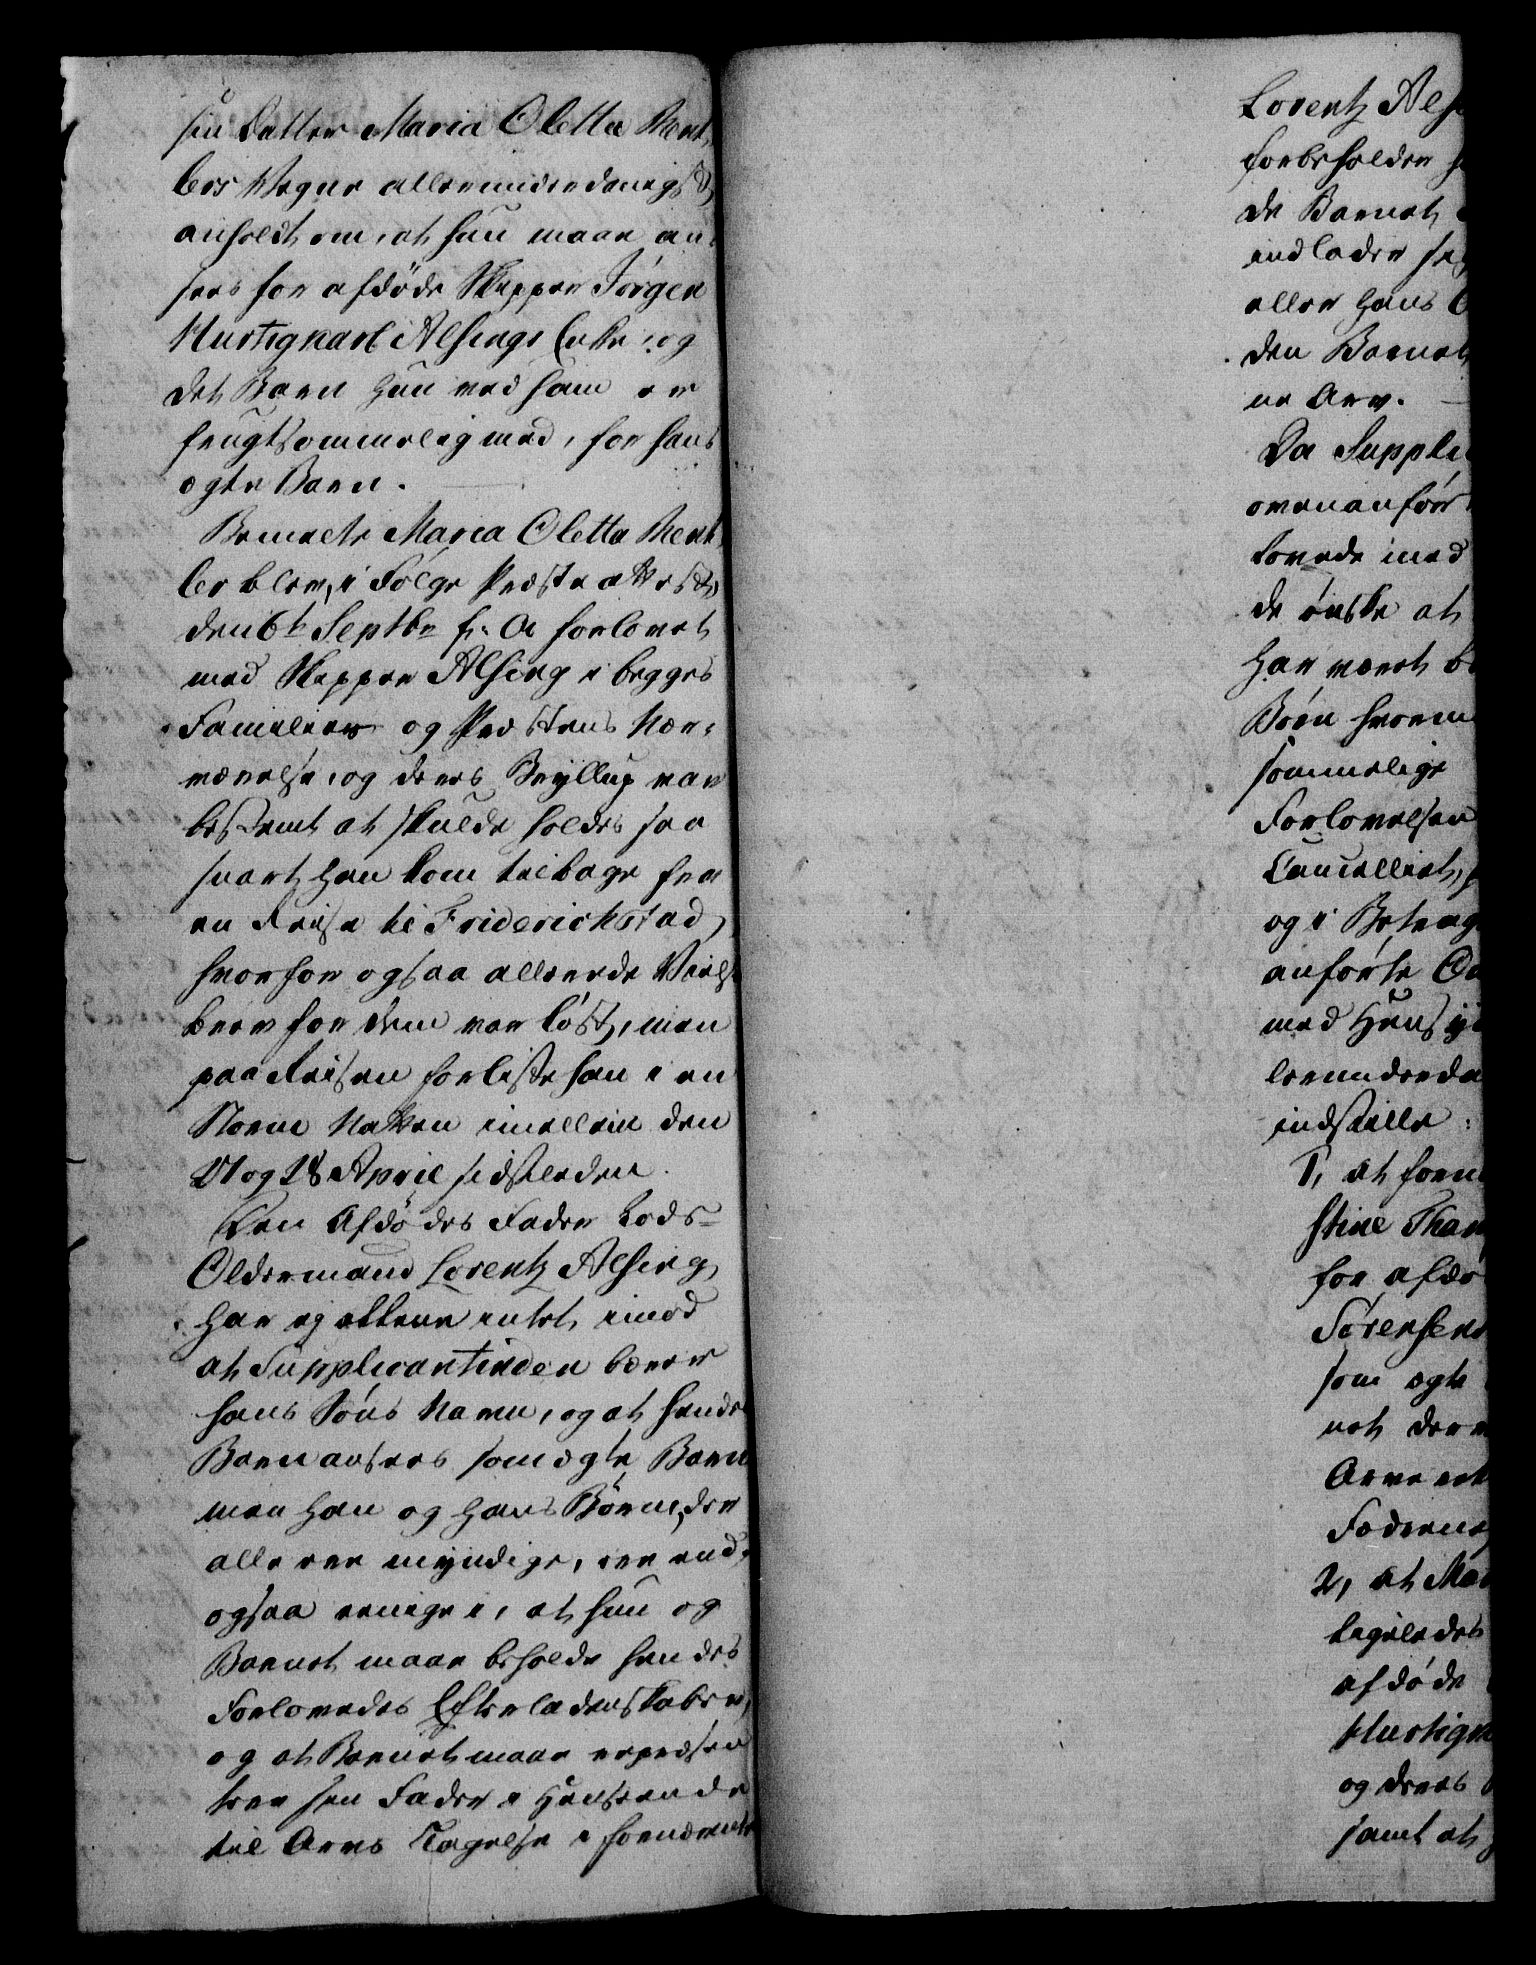 sin Datter Maria Oletta Ment
lers Vegne allerunderdanigst
anholdt om, at hun maae an-
sees for afdøde Skipper Jørgen
Hurtigkarl Alsings Enke, og
det Barn hun med ham er
frugtsommelig med, for hans
ægte Barn.
Bemeldte Maria Oletta Ment
ler blev, i Følge Præsteattest,
den 6te Septbr f. A forlovet
med Skipper Alsing i begges
Familiers og Præstens Nær-
værelse, og deres Bryllup var
bestemt at skulde holdes saa
snart han kom tilbage fra
en Reise til Friderichstad,
hvorfor ogsaa allerede Vielse
brev for dem var løst, men
paa Reisen forliste han i en
Storm Natten imellem den
17 og 18 April sidstleden.
Den Afdødes Fader Lods-
Oldermand Lorentz Alsing,
har ey allene intet imod
at Supplicantinden bærer
hans Søns Navn, og at hendes
Barn ansees som ægte Barn
men han og hans Børn, der
alle ere myndige, ere end-
ogsaa enige i, at hun og
Barnet maae beholde hendes
Forlovedes Efterladenskaber,
og at Barnet maae repræsen
tere sin Fader i Henseende
til Arvs Tagelse i fornævnte
Lorentz Als
forbeholden
de Barnet
indlader sig
eller hans
den Barnet
ne Arv.
Da Supplic
ovenanfør
lovede med
de ønske at
har været b
Børn hvorm
sommelige
Forlovelsen
Cancelliet,
og i Betrag
anførte
med Hensyn
lerunderda
indstille:
1, at forn
stine Than
for afdø
Sørensens
som ægte
net der
Arve
Fædrene
2, at Mar
ligeledes
afdøde
Hurtigk
og deres
samt at